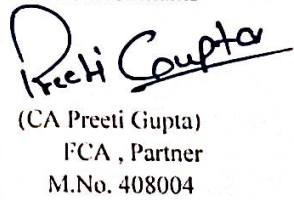 Preeti Gupta
(CA Preeti Gupta)
FCA , Partner
M.No. 408004